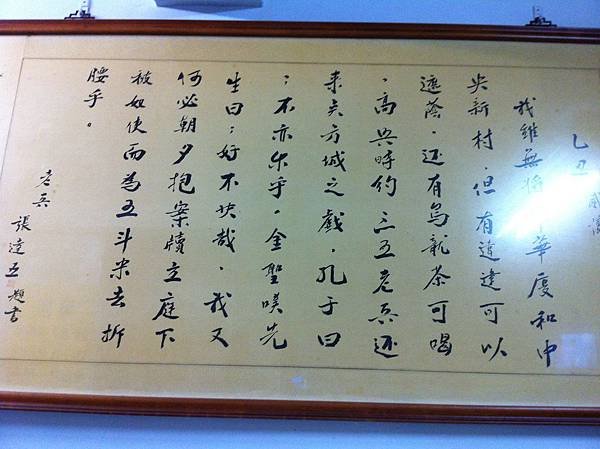 乙丑
我雖無將華廈和中
央新村．但有違建可以
遮蔭．还有烏龍茶可喝
．高興時約三五老兵还
来方城之戲．孔子曰
：不亦乐乎．金聖嘆先
生曰：好不快哉．我又
何必朝夕抱案牘立庭下
被奴使而為五斗米去折
腰乎。
老兵 張達五 題書